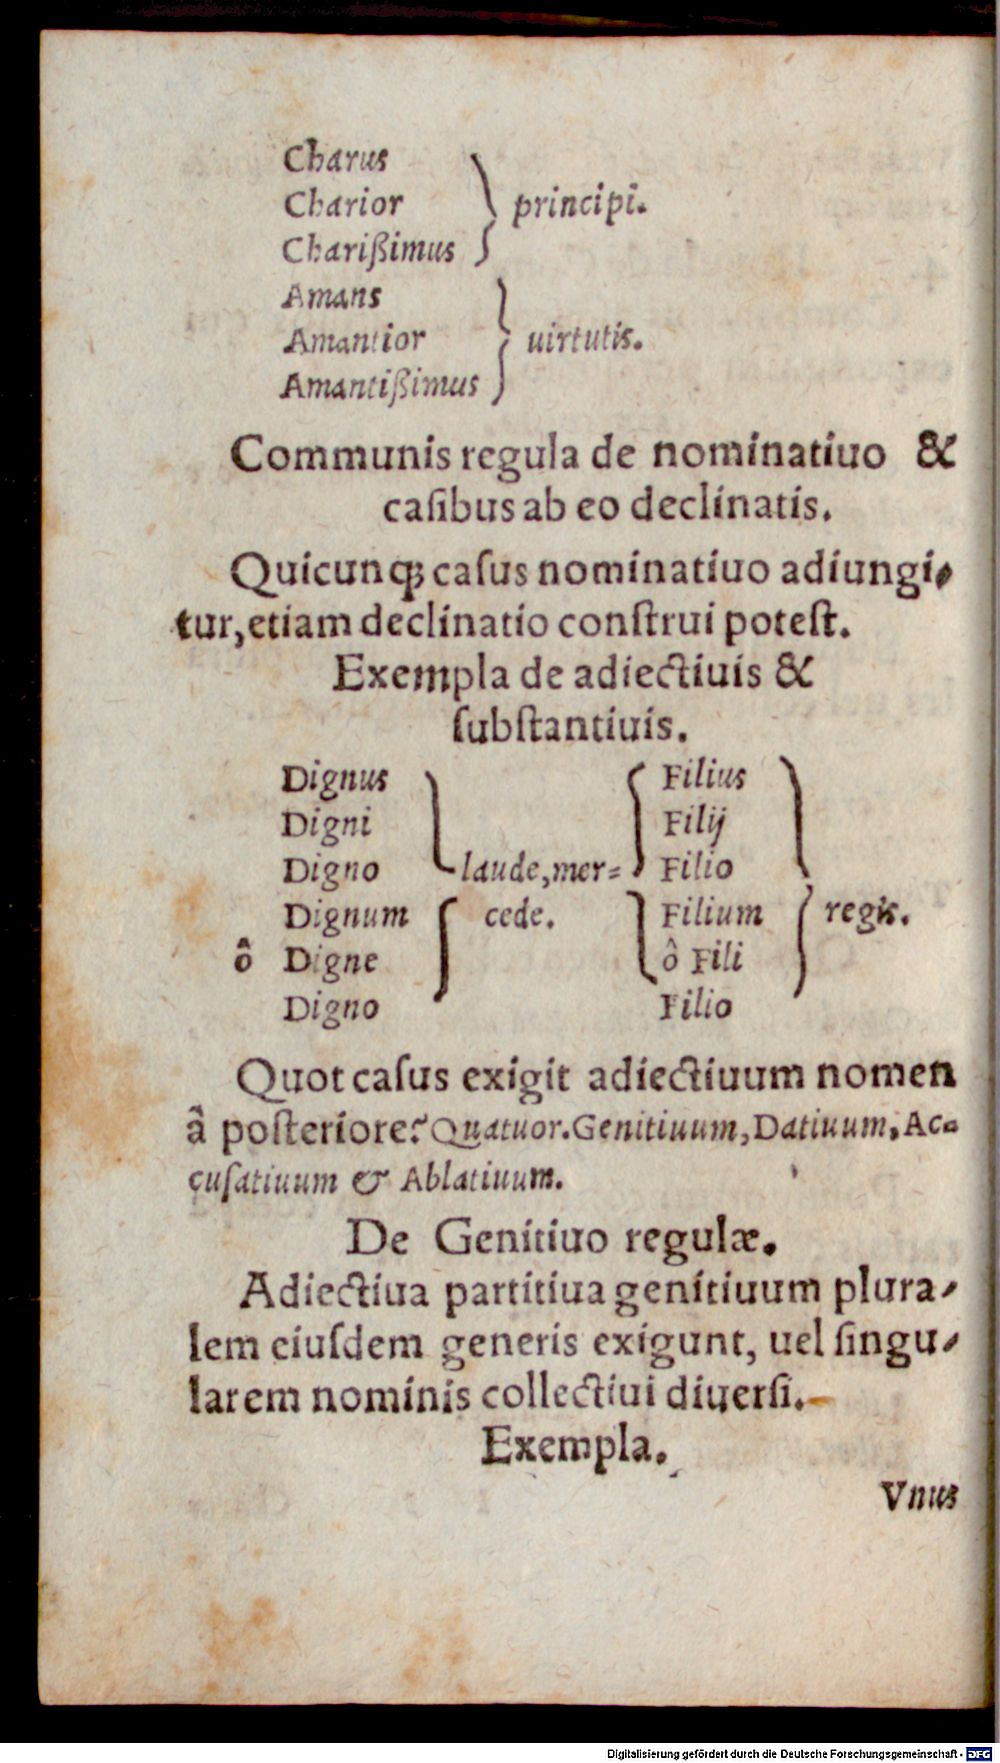 Charus
Charior } principi.
Charißimus
Amans
Amantior } uirtutis.
Amantißimus
Communis regula de nominatiuo &
caſibus ab eo declinatis.
Quicunq; caſus nominatiuo adiungi-
tur, etiam declinatio conſtrui poteſt.
Exempla de adiectiuis &
ſubſtantiuis.
Dignus Filius
Digni Filij
Digno laude, mer= Filio
Dignum cede. Filium regis.
ô Digne ô Fili
Digno Filio
Quot caſus exigit adiectiuum nomen
â poſteriore? Quatuor. Genitiuum, Datiuum, Ac=
cuſatiuum & Ablatiuum.
De Genitiuo regulæ.
Adiectiua partitiua genitiuum plura-
lem eiuſdem generis exigunt, uel ſingu-
larem nominis collectiui diuerſi.
Exempla.
Vnus
Digitalisierung gefördert durch die Deutsche Forschungsgemeinschaft - DFG